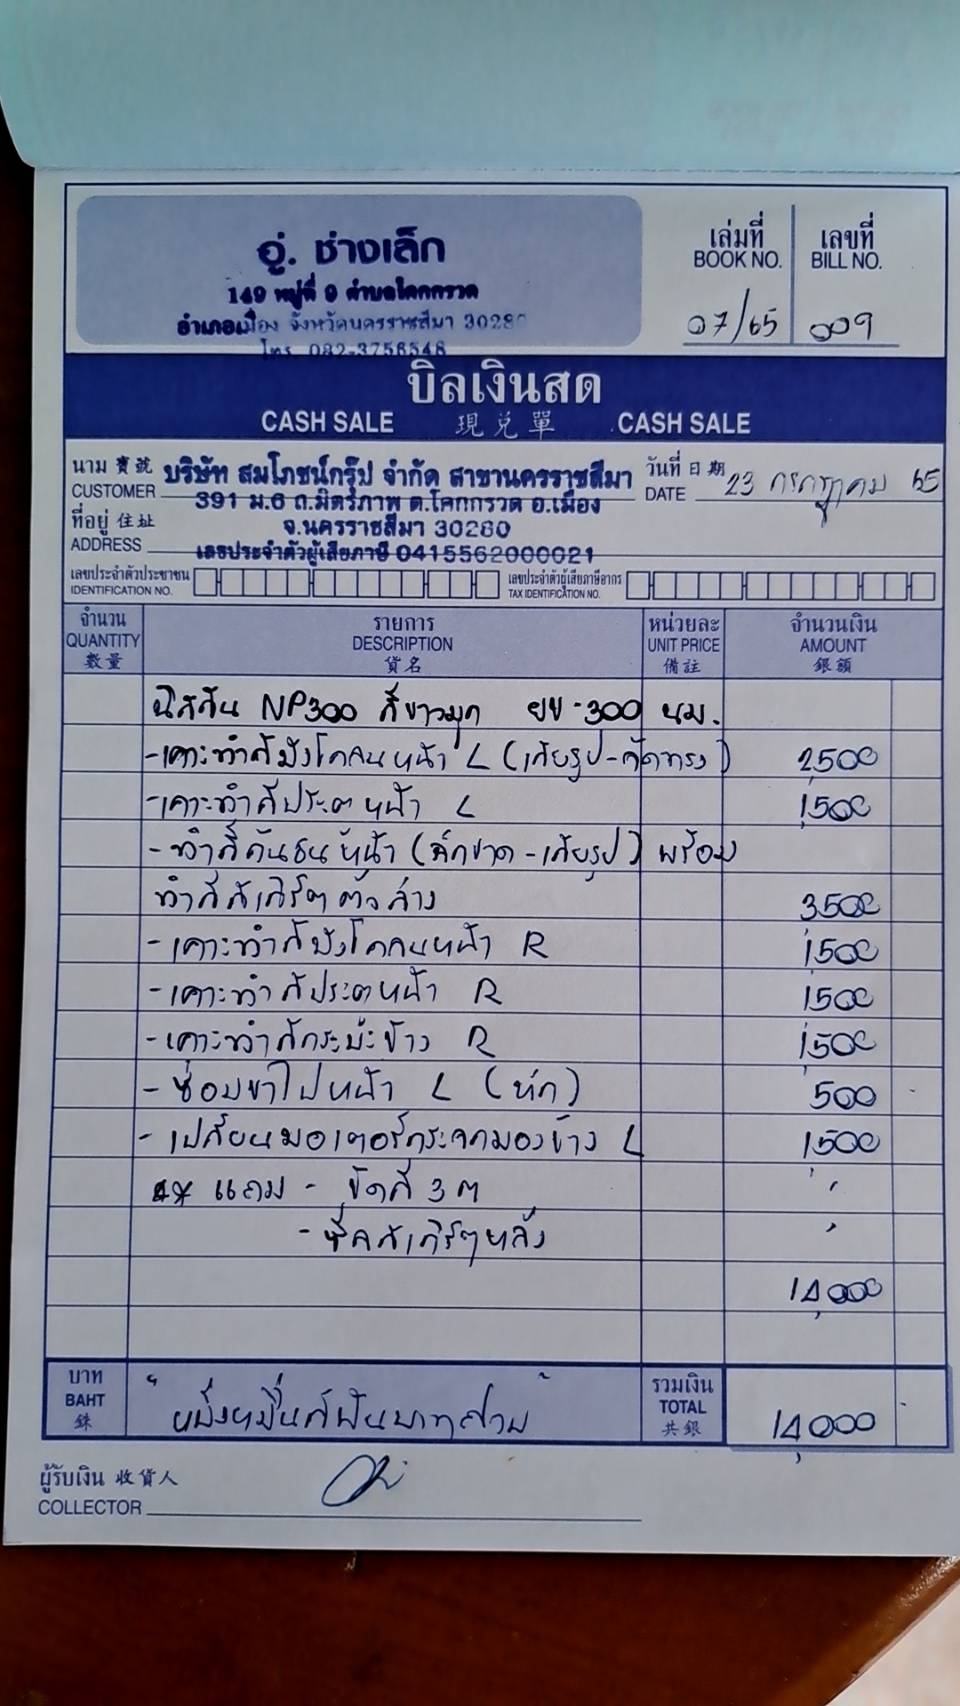 อู่. ช่างเล็ก
149 หมู่ที่ 9 ตำบลโคกกรวด
อำเภอเมือง จังหวัดนครราชสีมา 30280
โทร 082-3756548
เล่มที่ เลขที่
BOOK NO. BILL NO.
07/65 009
บิลเงินสด
CASH SALE 現兑單 CASH SALE
นาม 寳號 บริษัท สมโภชน์กรุ๊ป จำกัด สาขานครราชสีมา วันที่ 日期
CUSTOMER 391 ม.6 ถ.มิตรภาพ ต.โคกกรวด อ.เมือง DATE 23 กรกฎาคม 65
ที่อยู่ 住址 จ.นครราชสีมา 30280
ADDRESS เลขประจำตัวผู้เสียภาษี 0415562000021
เลขประจำตัวประชาชน เลขประจำตัวผู้เสียภาษีอากร
IDENTIFICATION NO. TAX IDENTIFICATION NO.
จำนวน รายการ หน่วยละ จำนวนเงิน
QUANTITY DESCRIPTION UNIT PRICE AMOUNT
數量 貨名 備註 銀額
นิสสัน NP300 สีขาวมุก ยข-300 นม.
-เคาะทำสีบังโคลนหน้า L (เสียรูป-ดัดทรง) 2,500
-เคาะทำสีประตูหน้า L 1,500
-ทำสีกันชนหน้า (ฉีกขาด-เสียรูป) พร้อม
ทำสีสเกิร์ตตัวล่าง 3,500
-เคาะทำสีบังโคลนหน้า R 1,500
-เคาะทำสีประตูหน้า R 1,500
-เคาะทำสีกระบะข้าง R 1,500
-ซ่อมขาไฟหน้า L (หัก) 500
-เปลี่ยนมอเตอร์กระจกมองข้าง L 1,500
** แถม - ขัดสี 3M
- สเกิร์ตหลัง
14,000
บาท รวมเงิน
BAHT "หนึ่งหมื่นสี่พันบาทถ้วน" TOTAL 14,000
銖 共銀
ผู้รับเงิน 收貨人
COLLECTOR